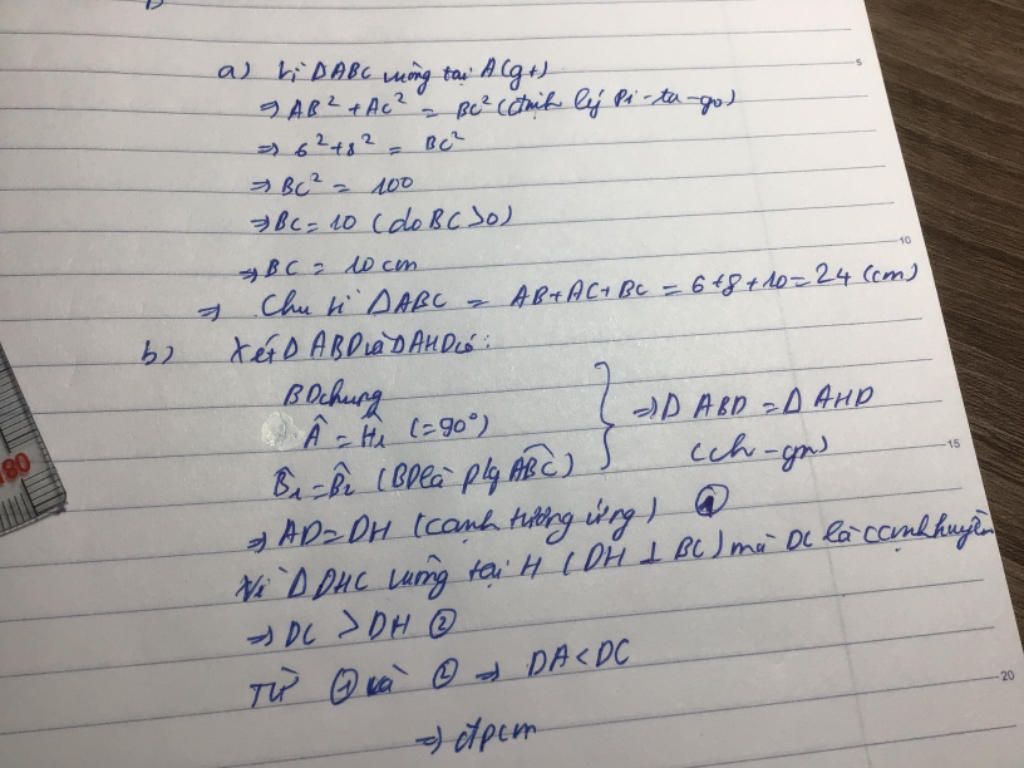 a) Vì ΔABC vuông tại A (gt)
⇒ AB² + AC² = BC² (định lý Pi-ta-go)
⇒ 6² + 8² = BC²
⇒ BC² = 100
⇒ BC = 10 (do BC > 0)
⇒ BC = 10 cm
⇒ Chu vi ΔABC = AB + AC + BC = 6 + 8 + 10 = 24 (cm)
b) Xét Δ ABD và Δ AHD có:
BD chung
Â = Ĥ₁ (= 90°)
B̂₁ = B̂₂ (BD là p/g ABC)
⇒ Δ ABD = Δ AHD
(ch - gn)
⇒ AD = DH (cạnh tương ứng) ①
Vì Δ DHC vuông tại H (DH ⊥ BC) mà DC là cạnh huyền
⇒ DC > DH ②
Từ ① và ② ⇒ DA < DC
⇒ đpcm
5
10
15
20
180